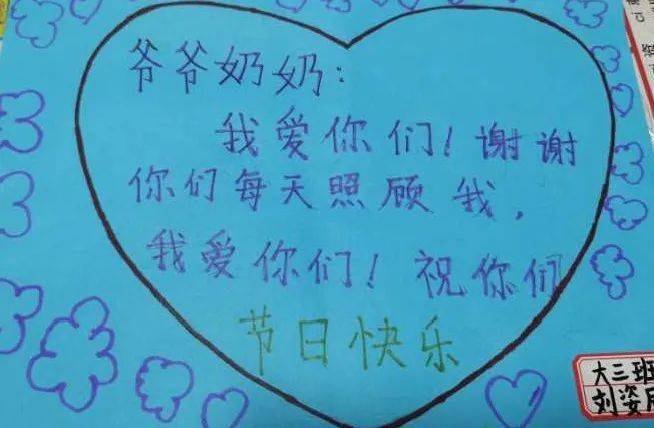 爷爷奶奶：
我爱你们！谢谢
你们每天照顾我，
我爱你们！祝你们
节日快乐
大三班
刘姿